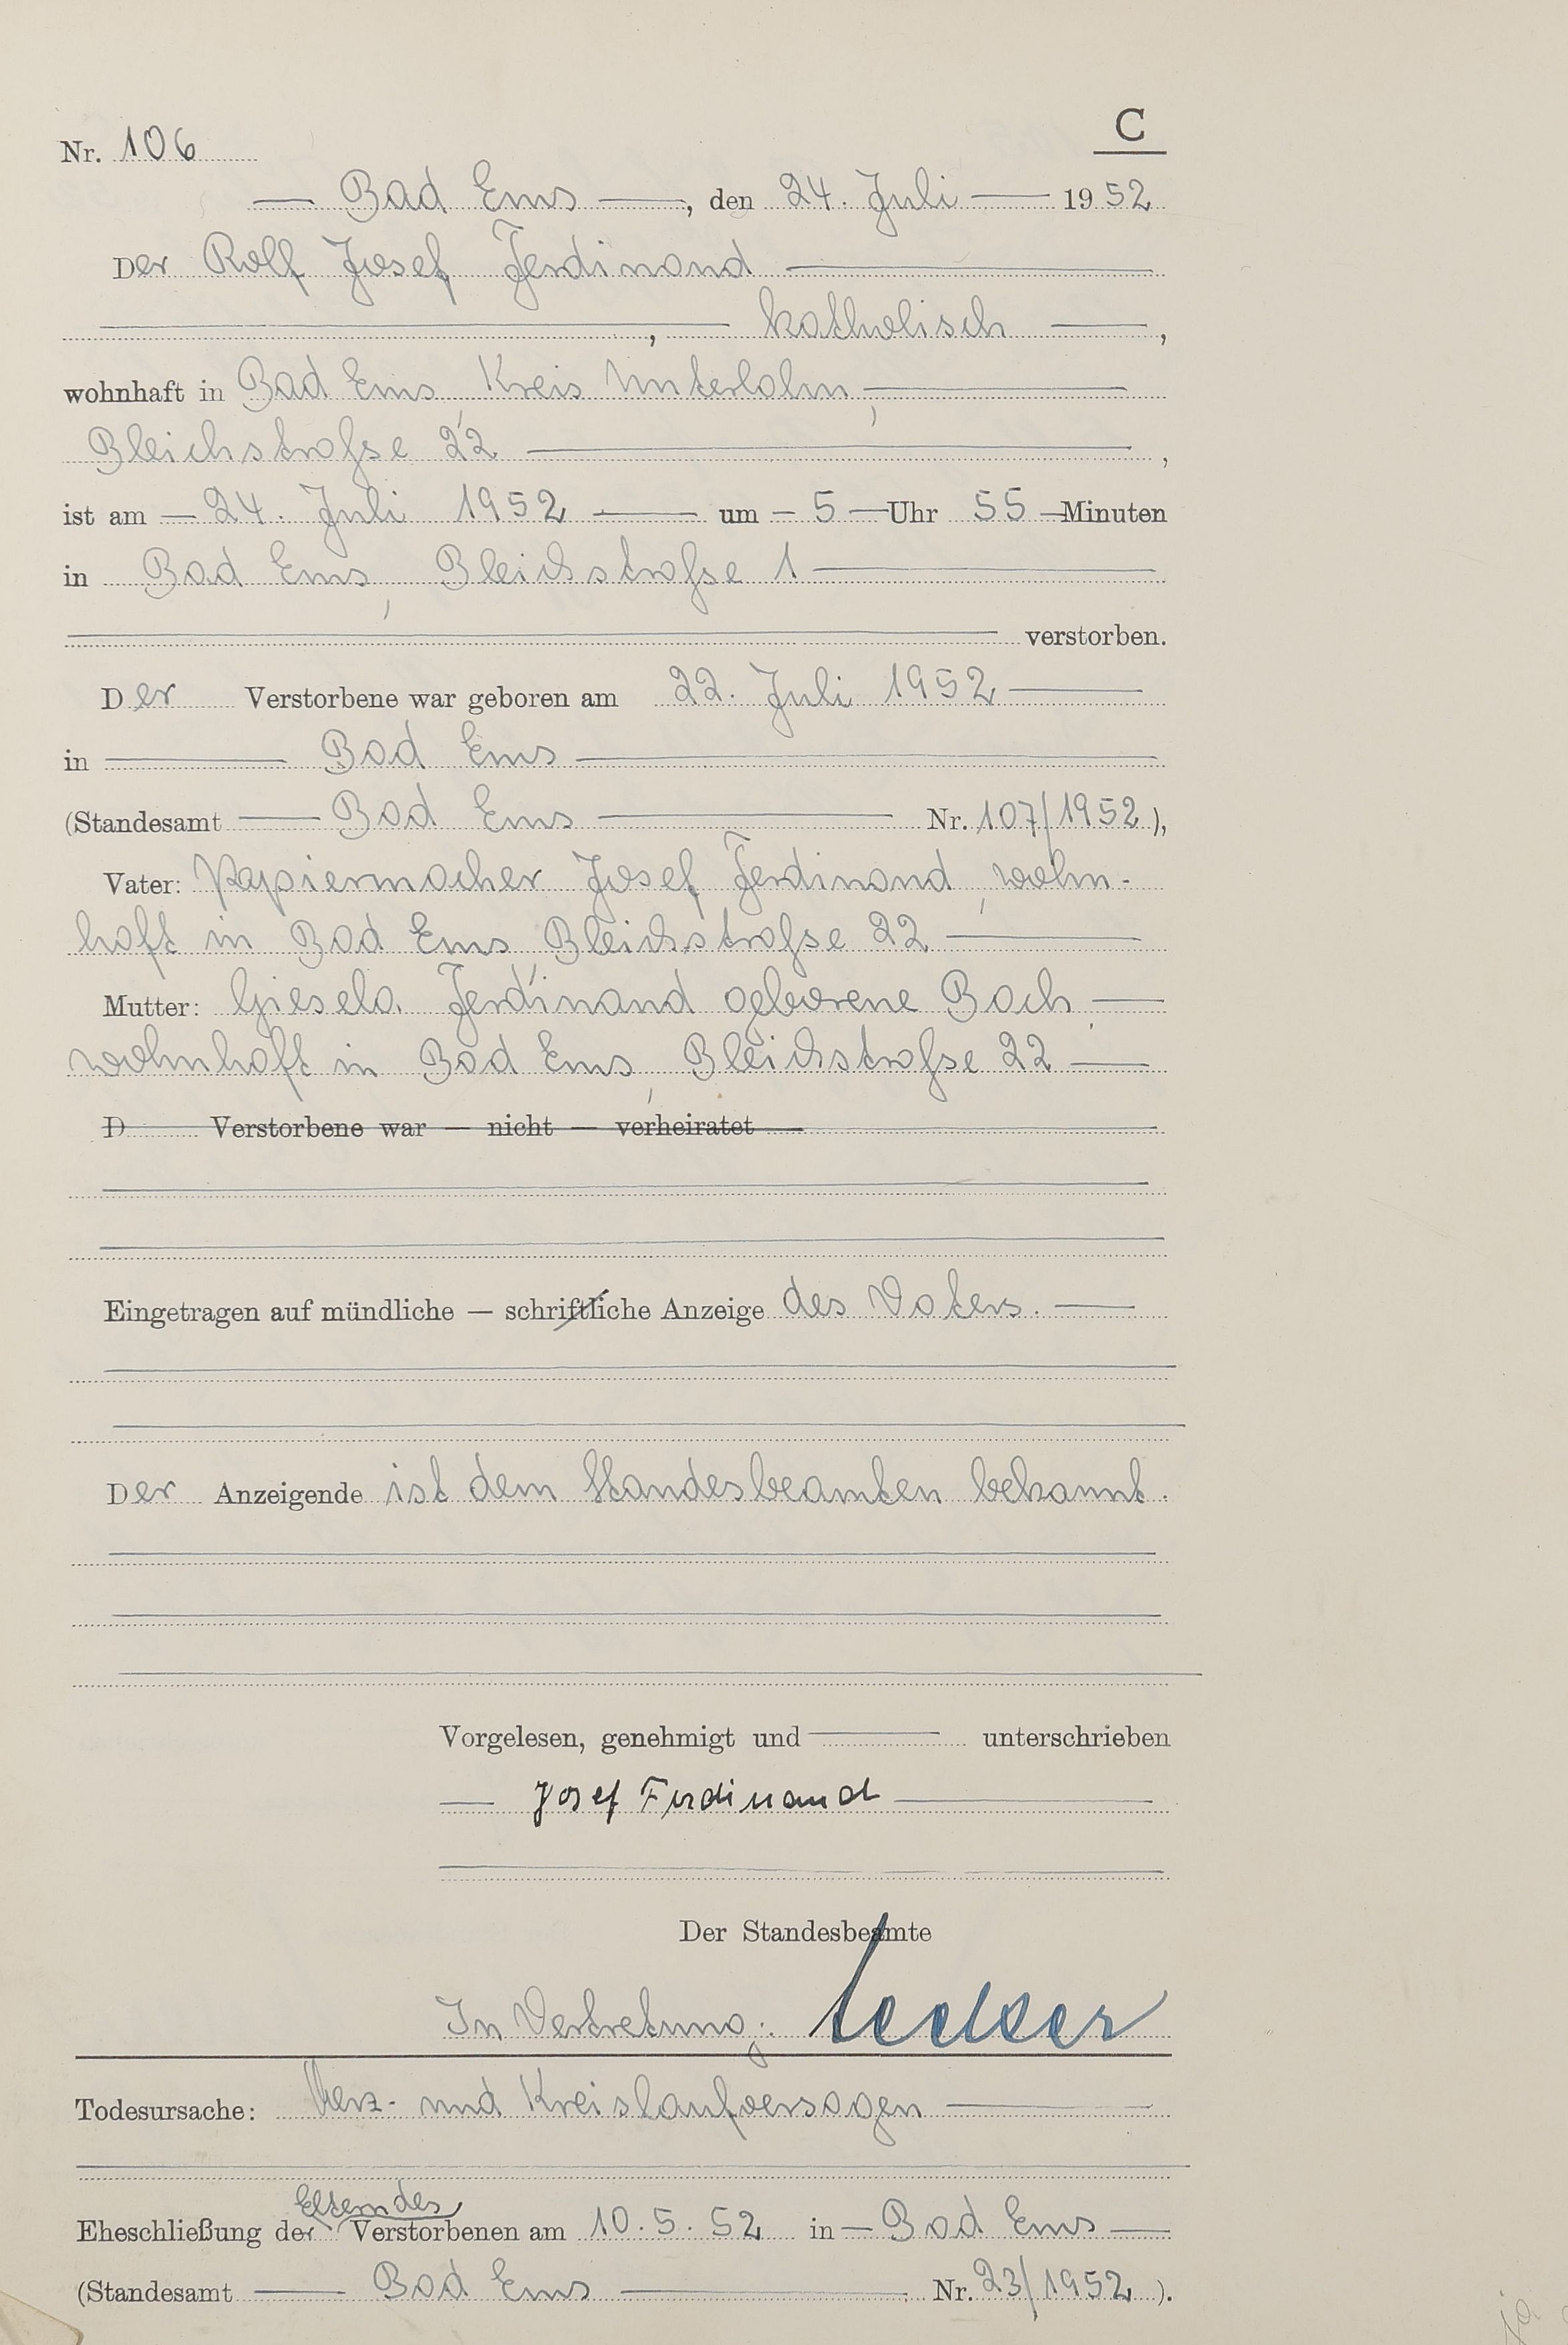 C
Nr. 106
Bad Ems, den 24. Juli 1952
Der Rolf Josef Ferdinand
, katholisch,
wohnhaft in Bad Ems, Kreis Unterlahn,
Bleichstraße 22,
ist am 24. Juli 1952 um 5 Uhr 55 Minuten
in Bad Ems, Bleichstraße 1
verstorben.
Der Verstorbene war geboren am 22. Juli 1952
in Bad Ems
(Standesamt Bad Ems Nr. 107/1952),
Vater: Papiermacher Josef Ferdinand, wohn-
haft in Bad Ems, Bleichstraße 22
Mutter: Giesela Ferdinand geborene Bach,
wohnhaft in Bad Ems, Bleichstraße 22
D Verstorbene war — nicht — verheiratet
Eingetragen auf mündliche — schriftliche Anzeige des Vaters.
Der Anzeigende ist dem Standesbeamten bekannt.
Vorgelesen, genehmigt und unterschrieben
Josef Ferdinand
Der Standesbeamte
In Vertretung:
Todesursache: Herz- und Kreislaufversagen
Eltern des
Eheschließung der Verstorbenen am 10.5.52 in Bad Ems
(Standesamt Bad Ems Nr. 23/1952).